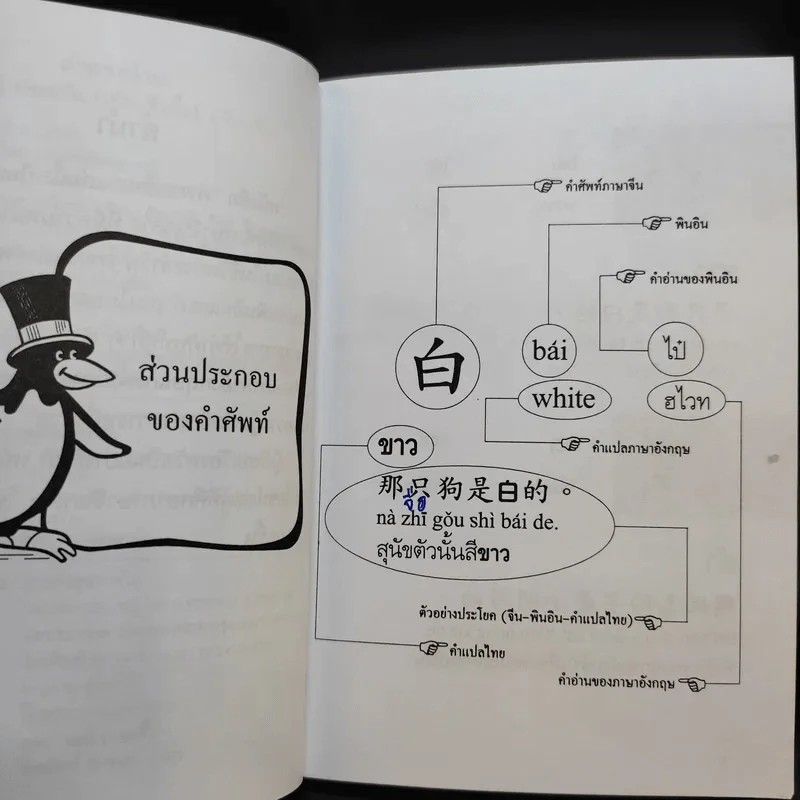 ส่วนประกอบ
ของคำศัพท์
คำศัพท์ภาษาจีน
พินอิน
คำอ่านของพินอิน
白
bái
ไป๋
white
ฮไวท
ขาว
คำแปลภาษาอังกฤษ
那只狗是白的。
จื่อ
nà zhī gǒu shì bái de.
สุนัขตัวนั้นสีขาว
ตัวอย่างประโยค (จีน-พินอิน-คำแปลไทย)
คำแปลไทย
คำอ่านของภาษาอังกฤษ